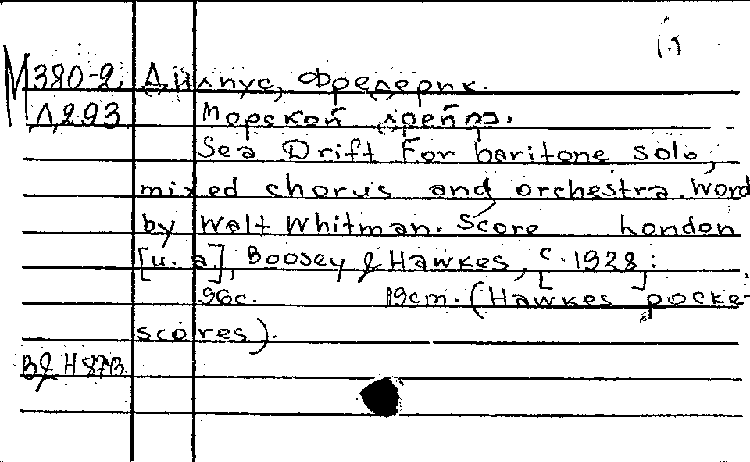 М380-2. Дилиус, Фредерик.
Д293 Морской дрейф.
Sea Drift For baritone solo,
mixed chorus and orchestra. Word
by Walt Whitman. Score London
[u. a], Boosey & Hawkes, c. [1928];
96с. 19cm. (Hawkes pocke-
scores).
B&H 873